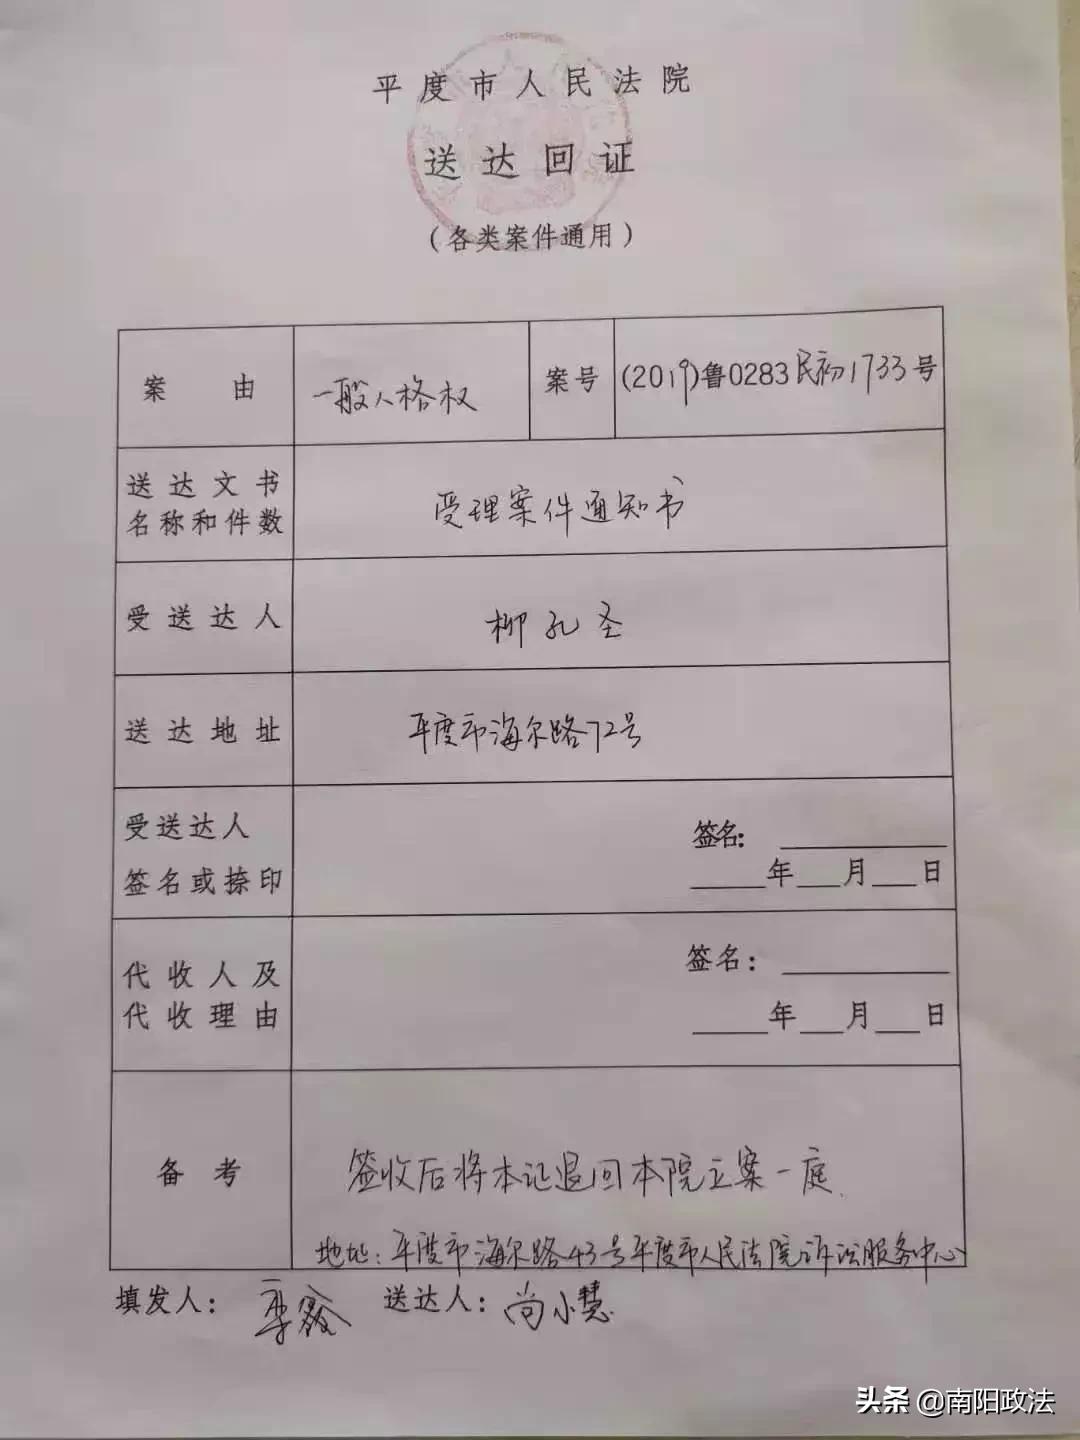 平度市人民法院
送达回证
（各类案件通用）
案由 一般人格权 案号 (2019)鲁0283民初1733号
送达文书
名称和件数
受理案件通知书
受送达人 柳孔圣
送达地址 平度市海尔路72号
受送达人
签名或捺印
签名：
年 月 日
代收人及
代收理由
签名：
年 月 日
备考 签收后将本证退回本院立案一庭.
地址：平度市海尔路43号平度市人民法院诉讼服务中心
填发人： 送达人：尚小慧
头条 @南阳政法